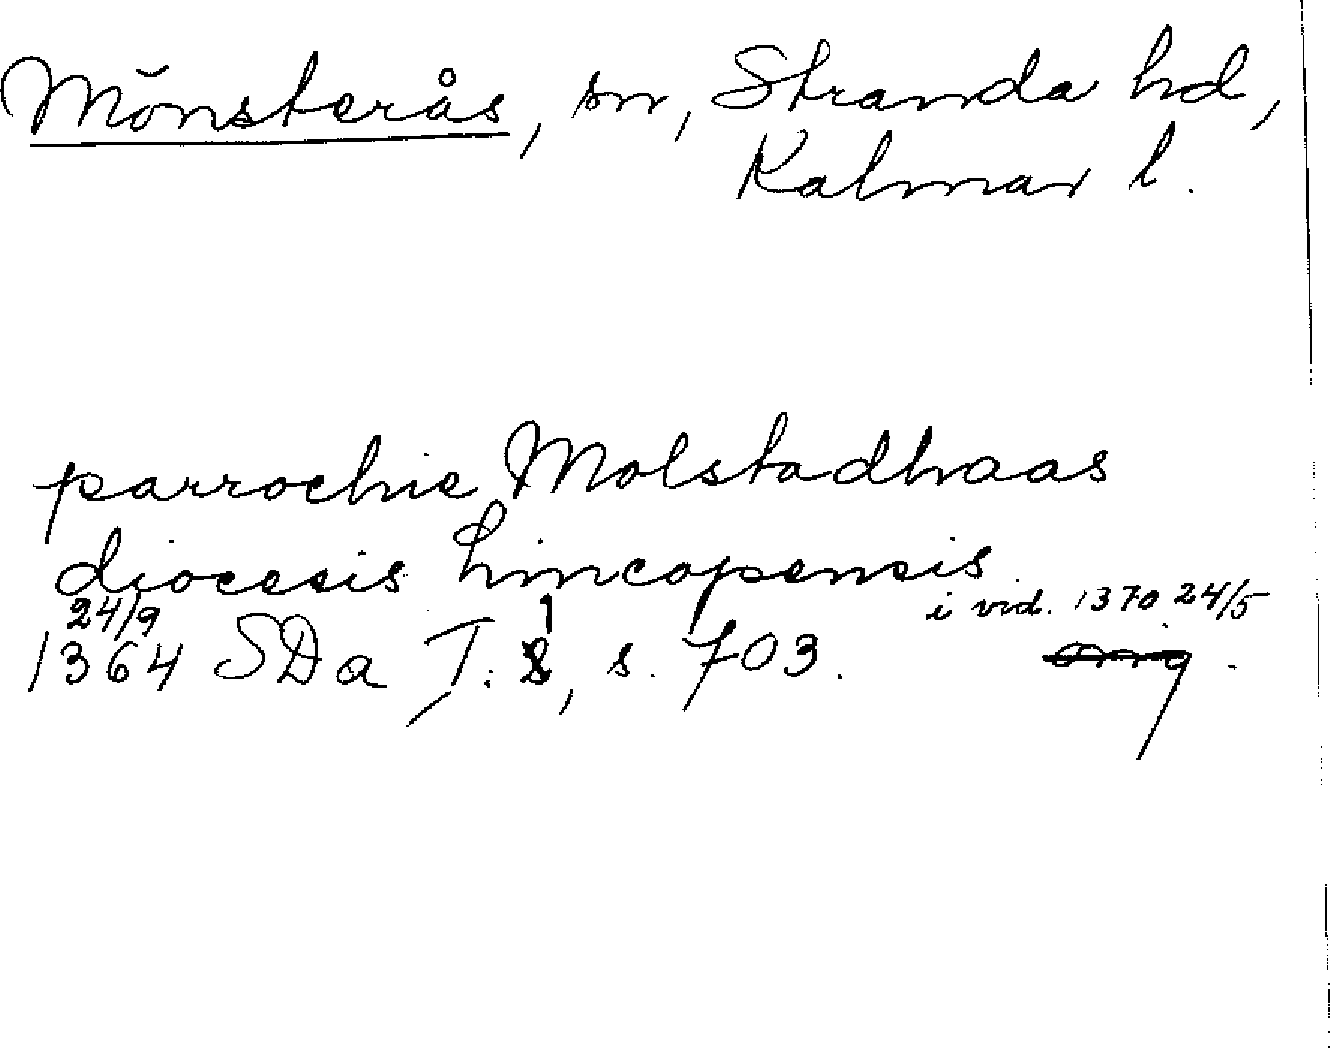 Mönsterås, sn, Stranda hd,
Kalmar l.
parrochie Molstadhaas
diocesis Lincopensis
i vid. 1370 24/5
24/9
1364 SDa T. 1, s. 703.